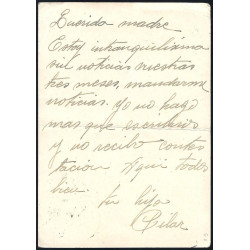 Querida madre
Estoy intranquilisima
sin noticias vuestras
tres meses, mandarme
noticias. yo no hago
mas que escribiros
y no recibo contes
tacion Aqui todos
bien.
tu hija
Pilar